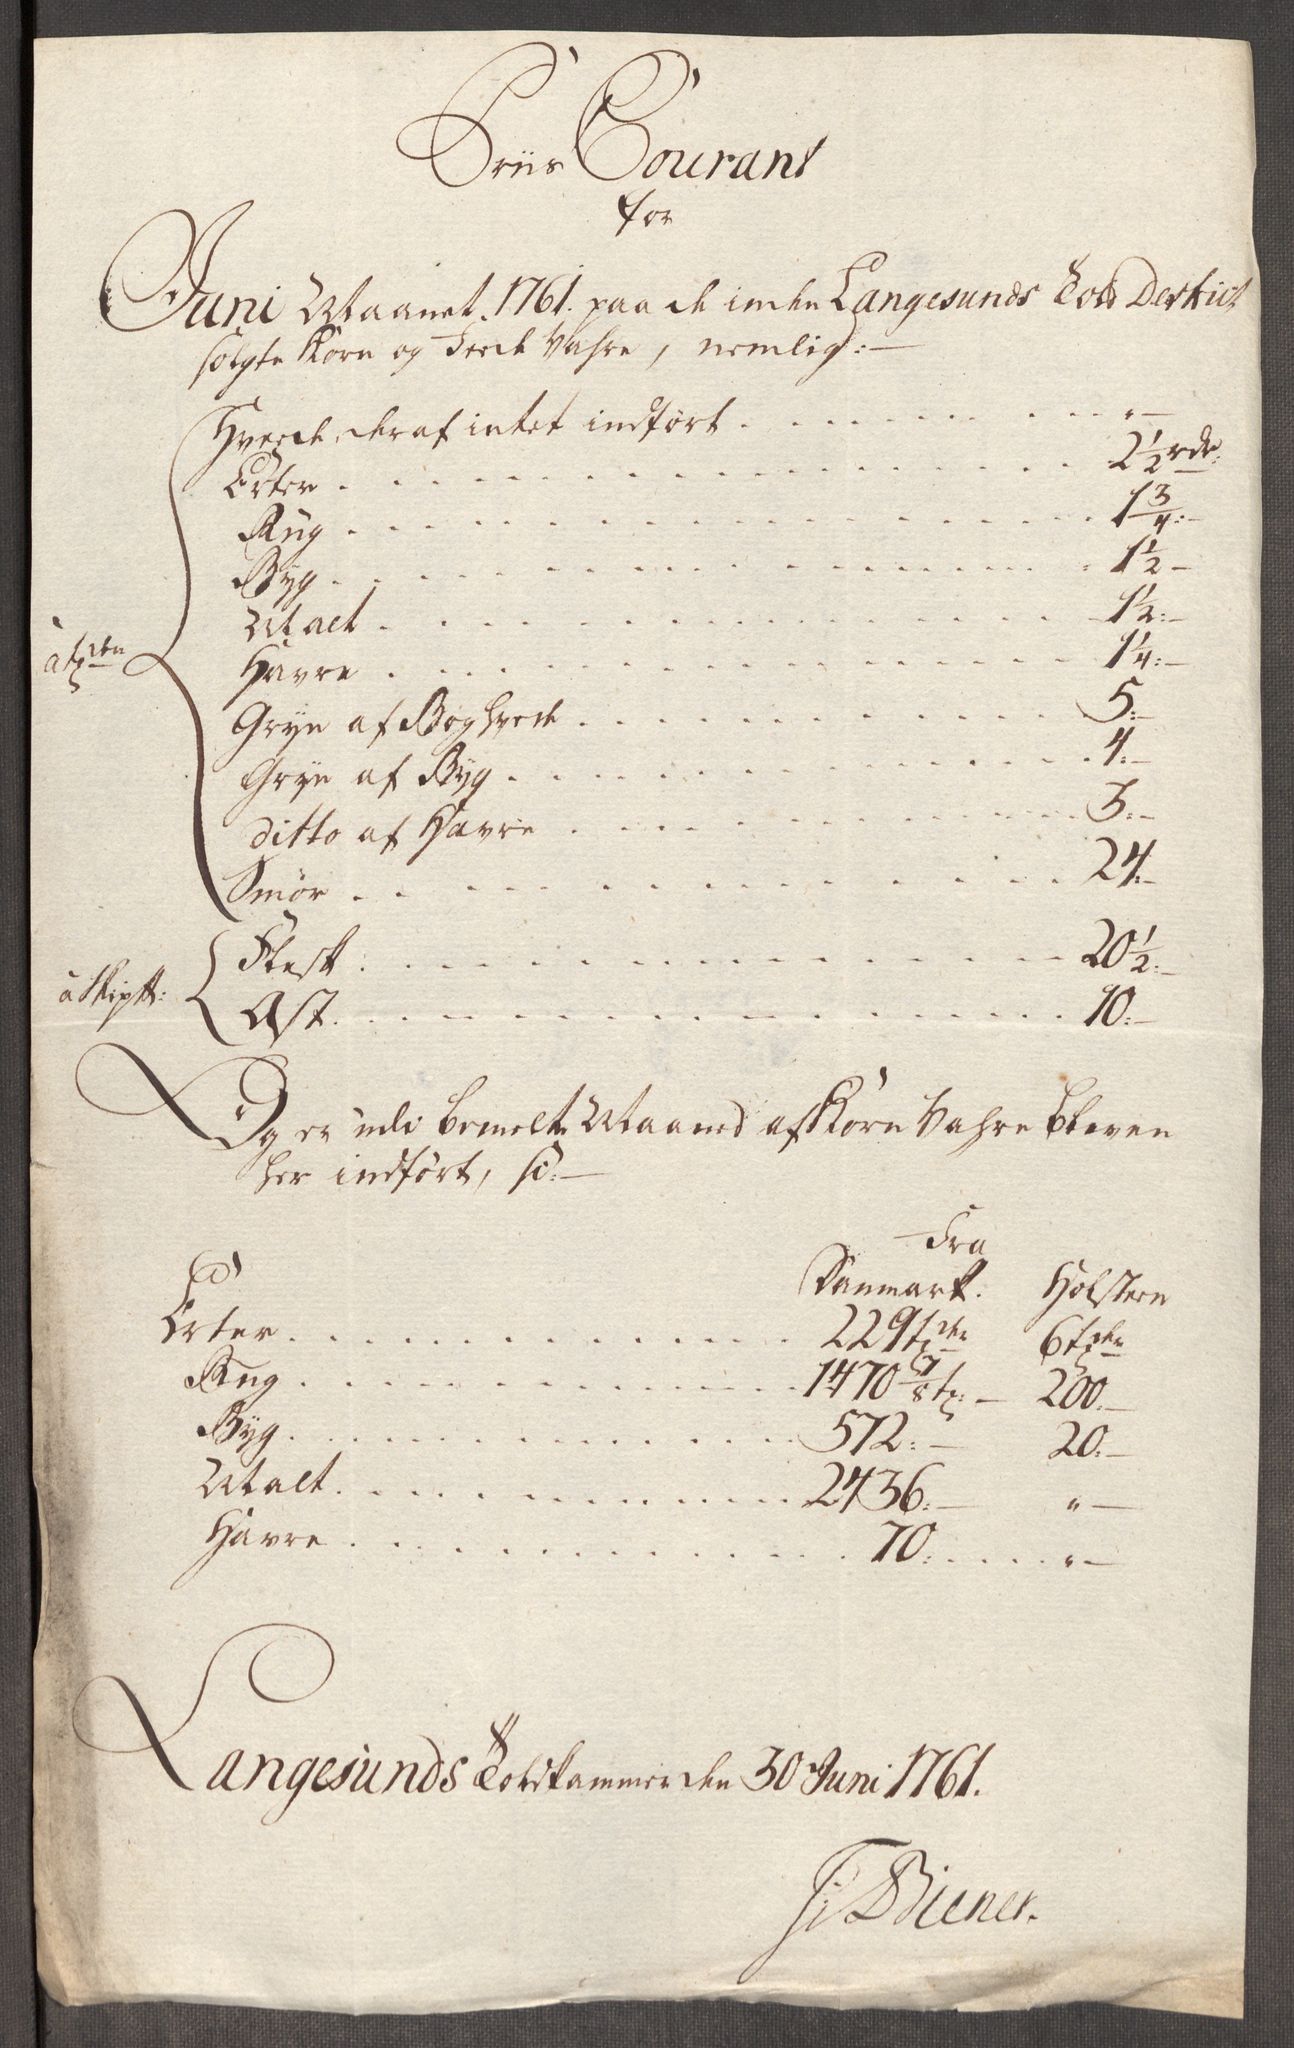 Priis Courant
for
Juni Maanet. 1761. paa de inden Langesunds Told Destrict
solgte Korn og Feede Vahre, nemlig:—
Hveede, deraf intet indført . . . . . . . . "—
Erter . . . . . . . . . . . . 2 1/2 rdr:
Rug . . . . . . . . . . . . 1 3/4:—
Byg . . . . . . . . . . . . 1 1/2—
Malt . . . . . . . . . . . . 1 1/2:—
à tønden
Havre . . . . . . . . . . . . 1 1/4:—
Gryn af Boghvede . . . . . . . . . 5:—
Gryn af Byg . . . . . . . . . . 4:—
ditto af Havre . . . . . . . . . . 3:—
Smør . . . . . . . . . . . . 24:—
Flesk . . . . . . . . . . . . 20 1/2:—
à Skip℔:
Ost . . . . . . . . . . . . 10:—
Og er udi bemelte Maaned af Korn Vahre bleven
her indført, so:—
Fra
Danmark. Holsteen
Erter . . . . . . . . . . 229 tønder 6 tønder
Rug . . . . . . . . . . 1470 7/8 tr:— 200:—
Byg . . . . . . . . . . 572:— 20:—
Malt . . . . . . . . . . 2436:— "—
Havre . . . . . . . . . . 70: . . . . "—
Langesunds Toldkammer den 30 Juni 1761.
Biener.